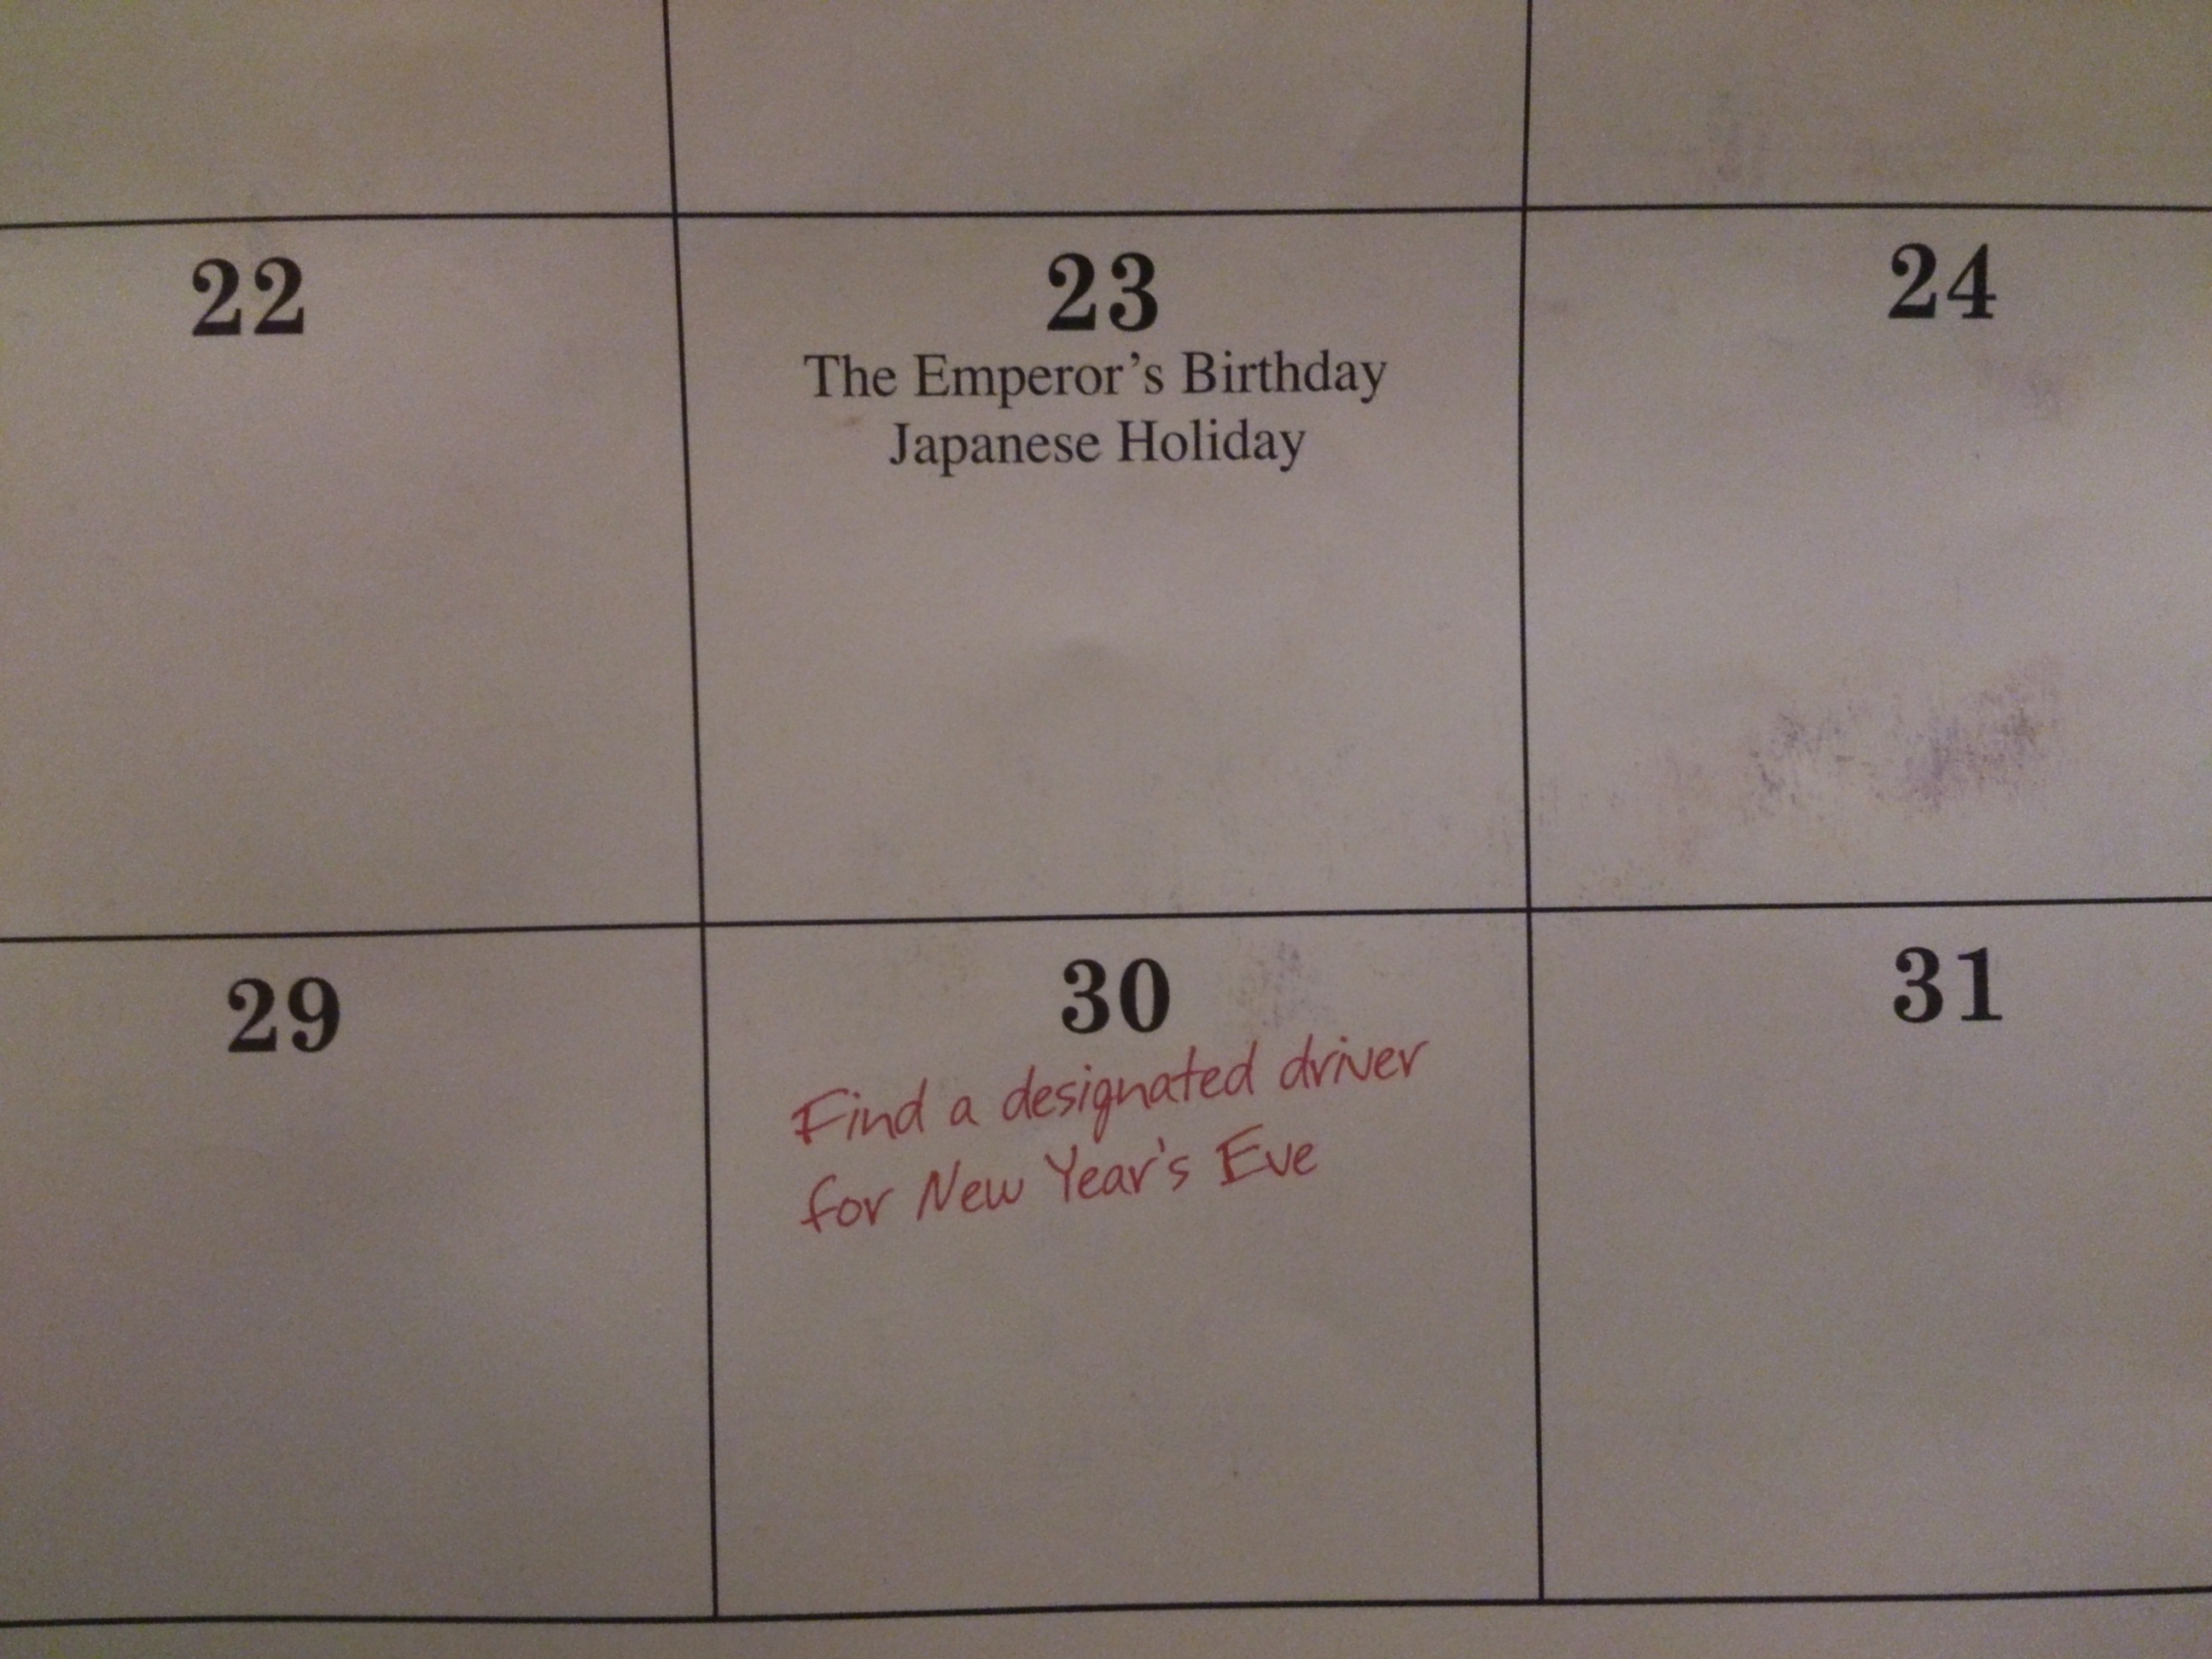 22
23
24
The Emperor's Birthday
Japanese Holiday
29
30
31
Find a designated driver
for New Year's Eve